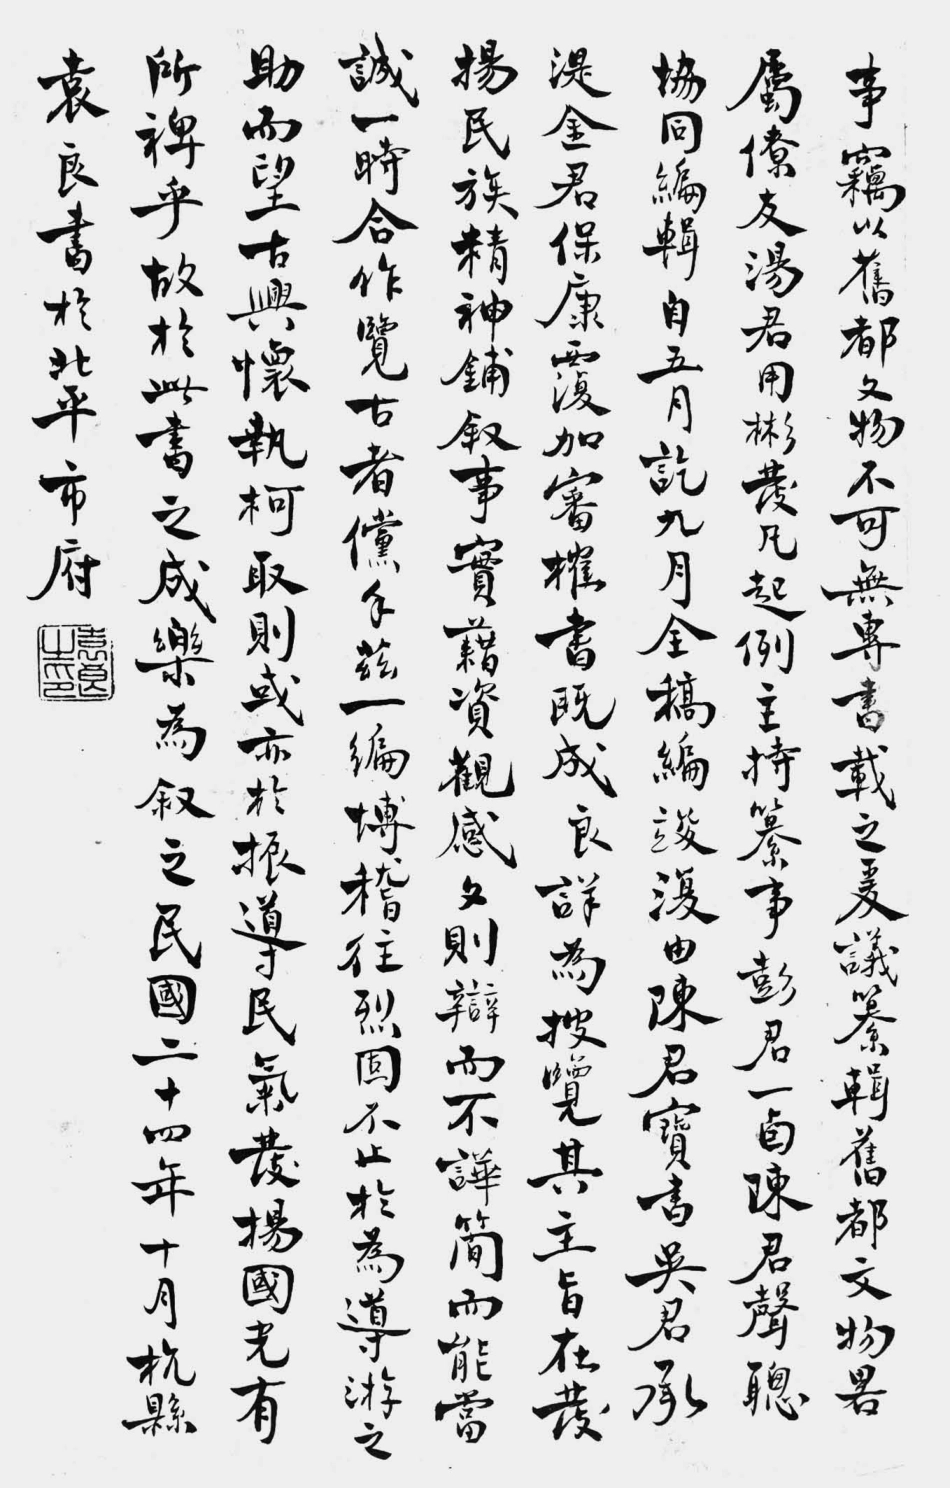 事竊以舊都文物不可無專書載之爰議纂輯舊都文物畧
屬僚友湯君用彬發凡起例主持纂事彭君一卣陳君聲聰
協同編輯自五月訖九月全稿編竣復由陳君寶書吳君承
湜金君保康覆加審榷書既成良詳為披覽其主旨在發
揚民族精神鋪叙事實藉資觀感文則辯而不譁簡而能當
誠一時合作覽古者儻手茲一編博稽往烈固不止於為導游之
助而望古興懷執柯取則或亦於振導民氣發揚國光有
所裨乎故於此書之成樂為叙之民國二十四年十月杭縣
袁良書於北平市府
袁良之印